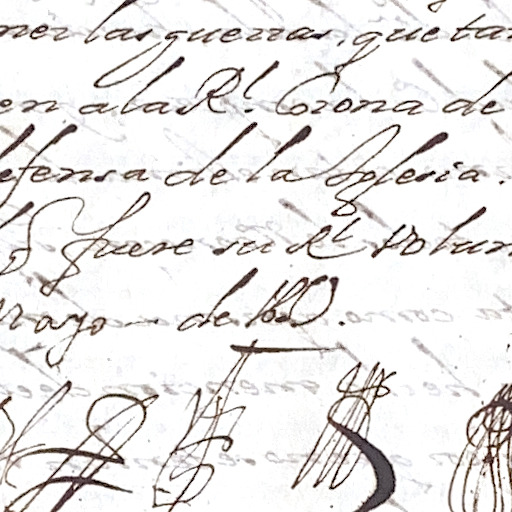 ner las guerras, que tan
en a la Rl. Corona de
efensa de la Iglesia.
fuere su Rl volun
mayo de